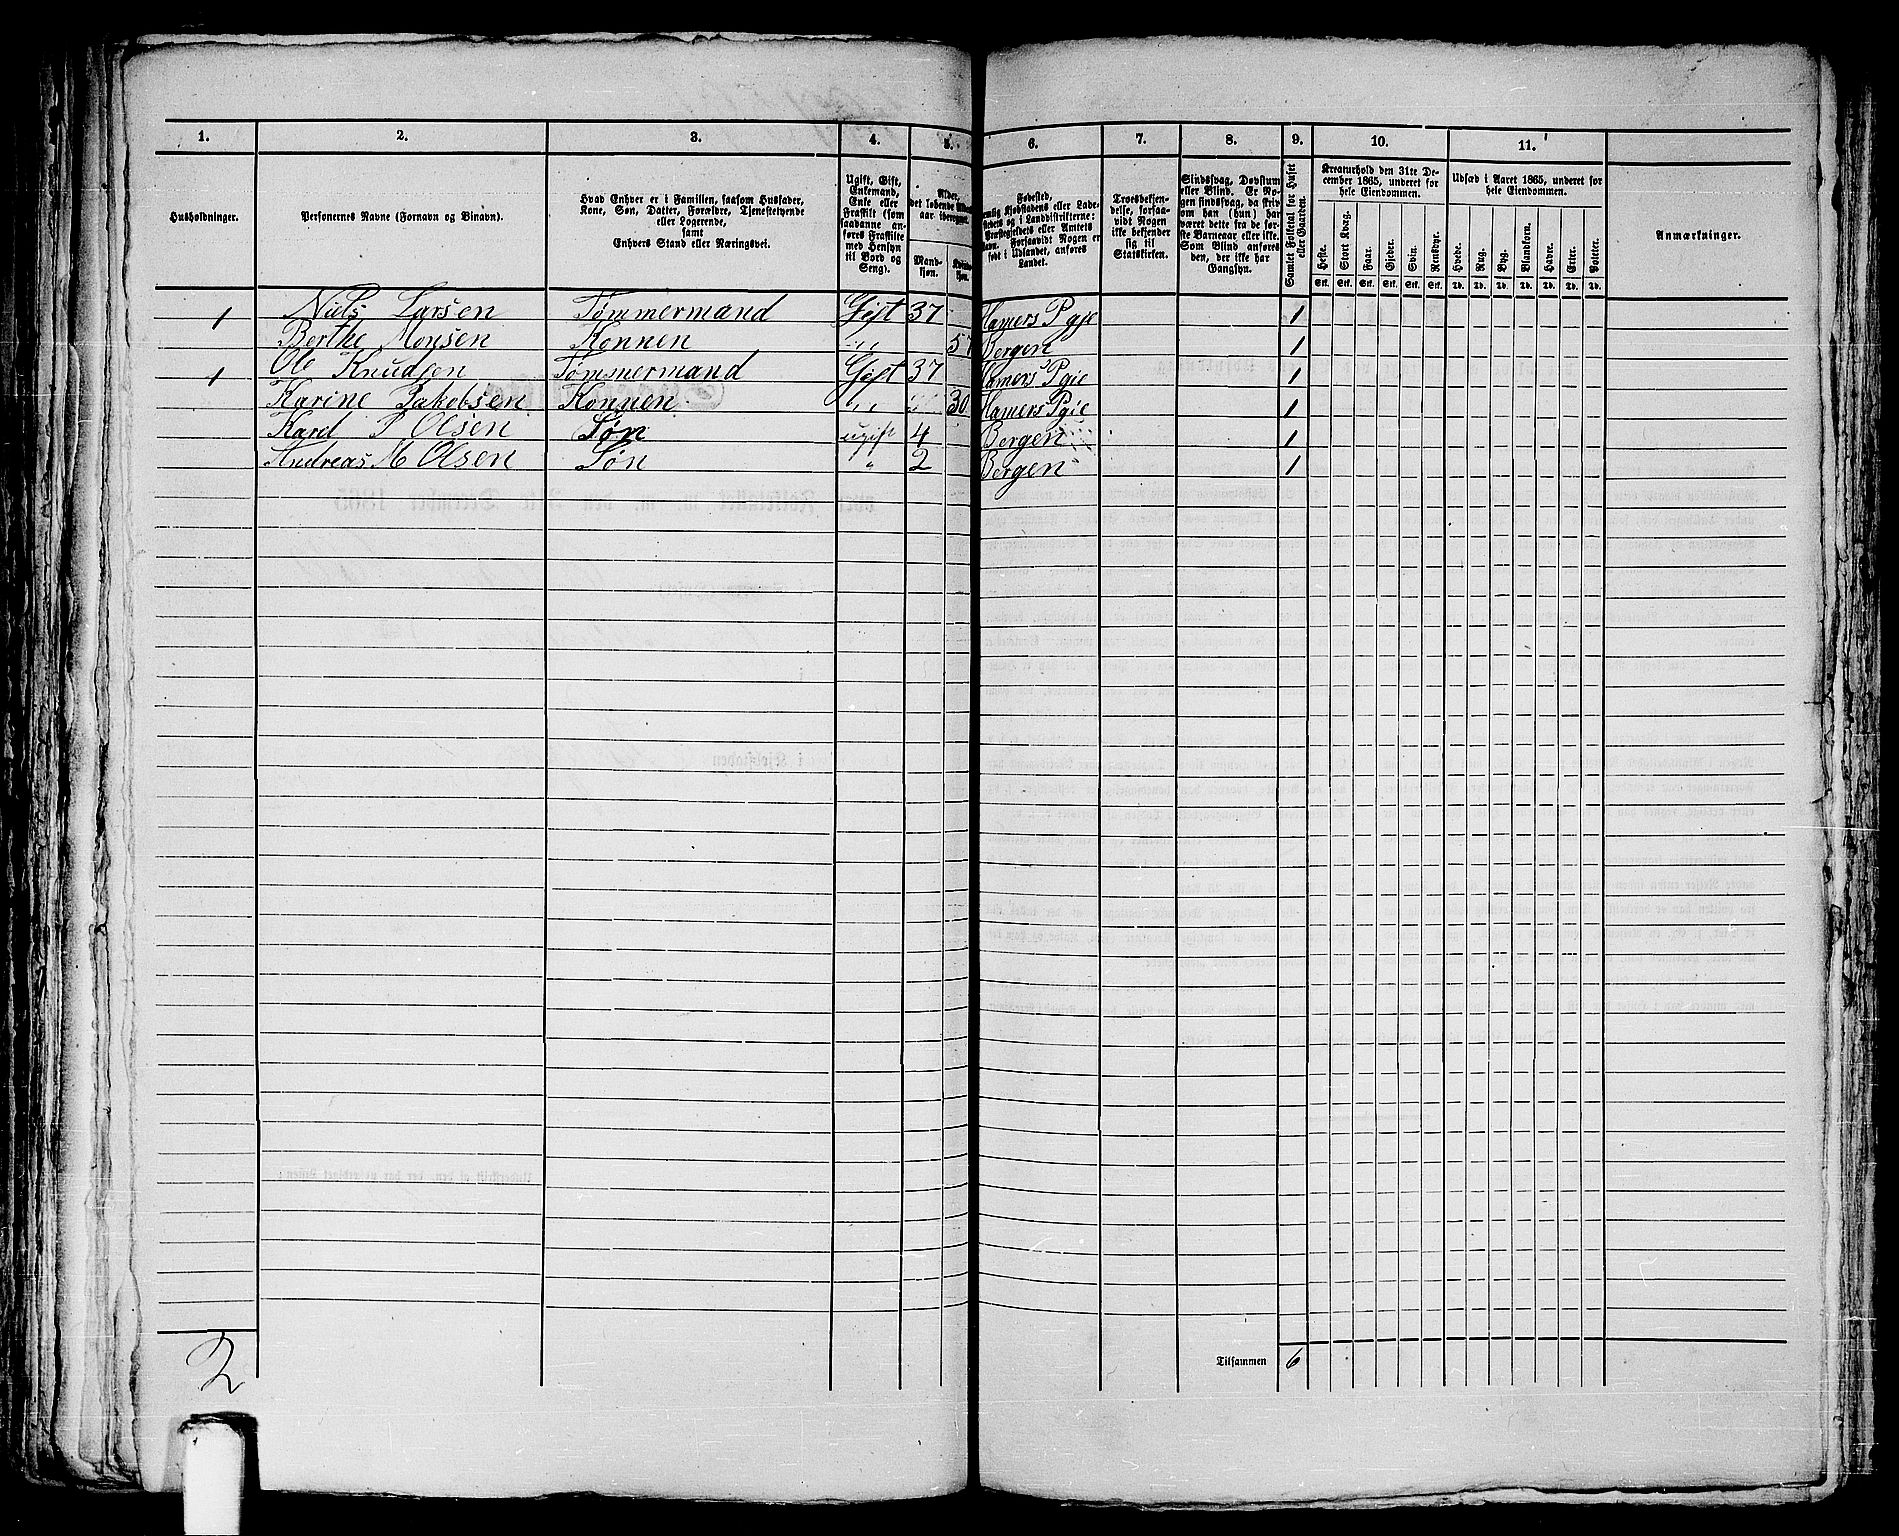 1. 2. 3. 4. 5. 6. 7. 8. 9. 10. 11.
Husholdninger.
Personernes Navne (Fornavn og Binavn).
Hvad Enhver er i Familien, saasom Husfader,
Kone, Søn, Datter, Forældre, Tjenestetyende
eller Logerende,
samt
Enhvers Stand eller Næringsvei.
Ugift, Gift,
Enkemand,
Enke eller
Fraskilt (som
saadanne an-
føres Fraskilte
med Hensyn
til Bord og
Seng).
Alder,
det løbende
aar iberegnet.
Mand-
kjøn.
Kvinde-
kjøn.
Fødested,
nemlig Kjøbstadens eller Lade-
stedets og i Landdistrikterne:
Præstegjeldets eller Amtets
Navn. Forsaavidt Nogen er
født i Udlandet, anføres
Landet.
Troesbekjen-
delse, forsaa-
vidt Nogen
ikke bekjender
sig til
Statskirken.
Sindssvag, Døvstum
eller Blind. Er No-
gen sindssvag, da skriv
om han (hun) har
været dette fra de før-
ste Barneaar eller ikke.
Som Blind anføres
den, der ikke har
Gangsyn.
Samlet Folketal for Huset
eller Gaarden.
Kreaturhold den 31te De-
cember 1865, underet for
hele Eiendommen.
Heste. Stort Kvæg. Faar. Gjeder. Svin. Rensdyr.
Stk. Stk. Stk. Stk. Stk. Stk.
Udsæd i Aaret 1865, underet for
hele Eiendommen.
Hvede. Rug. Byg. Blandkorn. Havre. Erter. Poteter.
Td. Td. Td. Td. Td. Td. Td.
Anmærkninger.
1 Niels Larsen Tømmermand Gift 37 Hamers Pgje 1
Berthe Monsen Konnen " 57 Bergen 1
1 Ole Knudsen Tømmermand Gift 37 Hamers Pgje 1
Karine Jakobsen Konnen " 30 Hamers Pgje 1
Karl P Olsen Søn ugift 4 Bergen 1
Andreas M Olsen Søn " 2 Bergen 1
2 Tilsammen 6